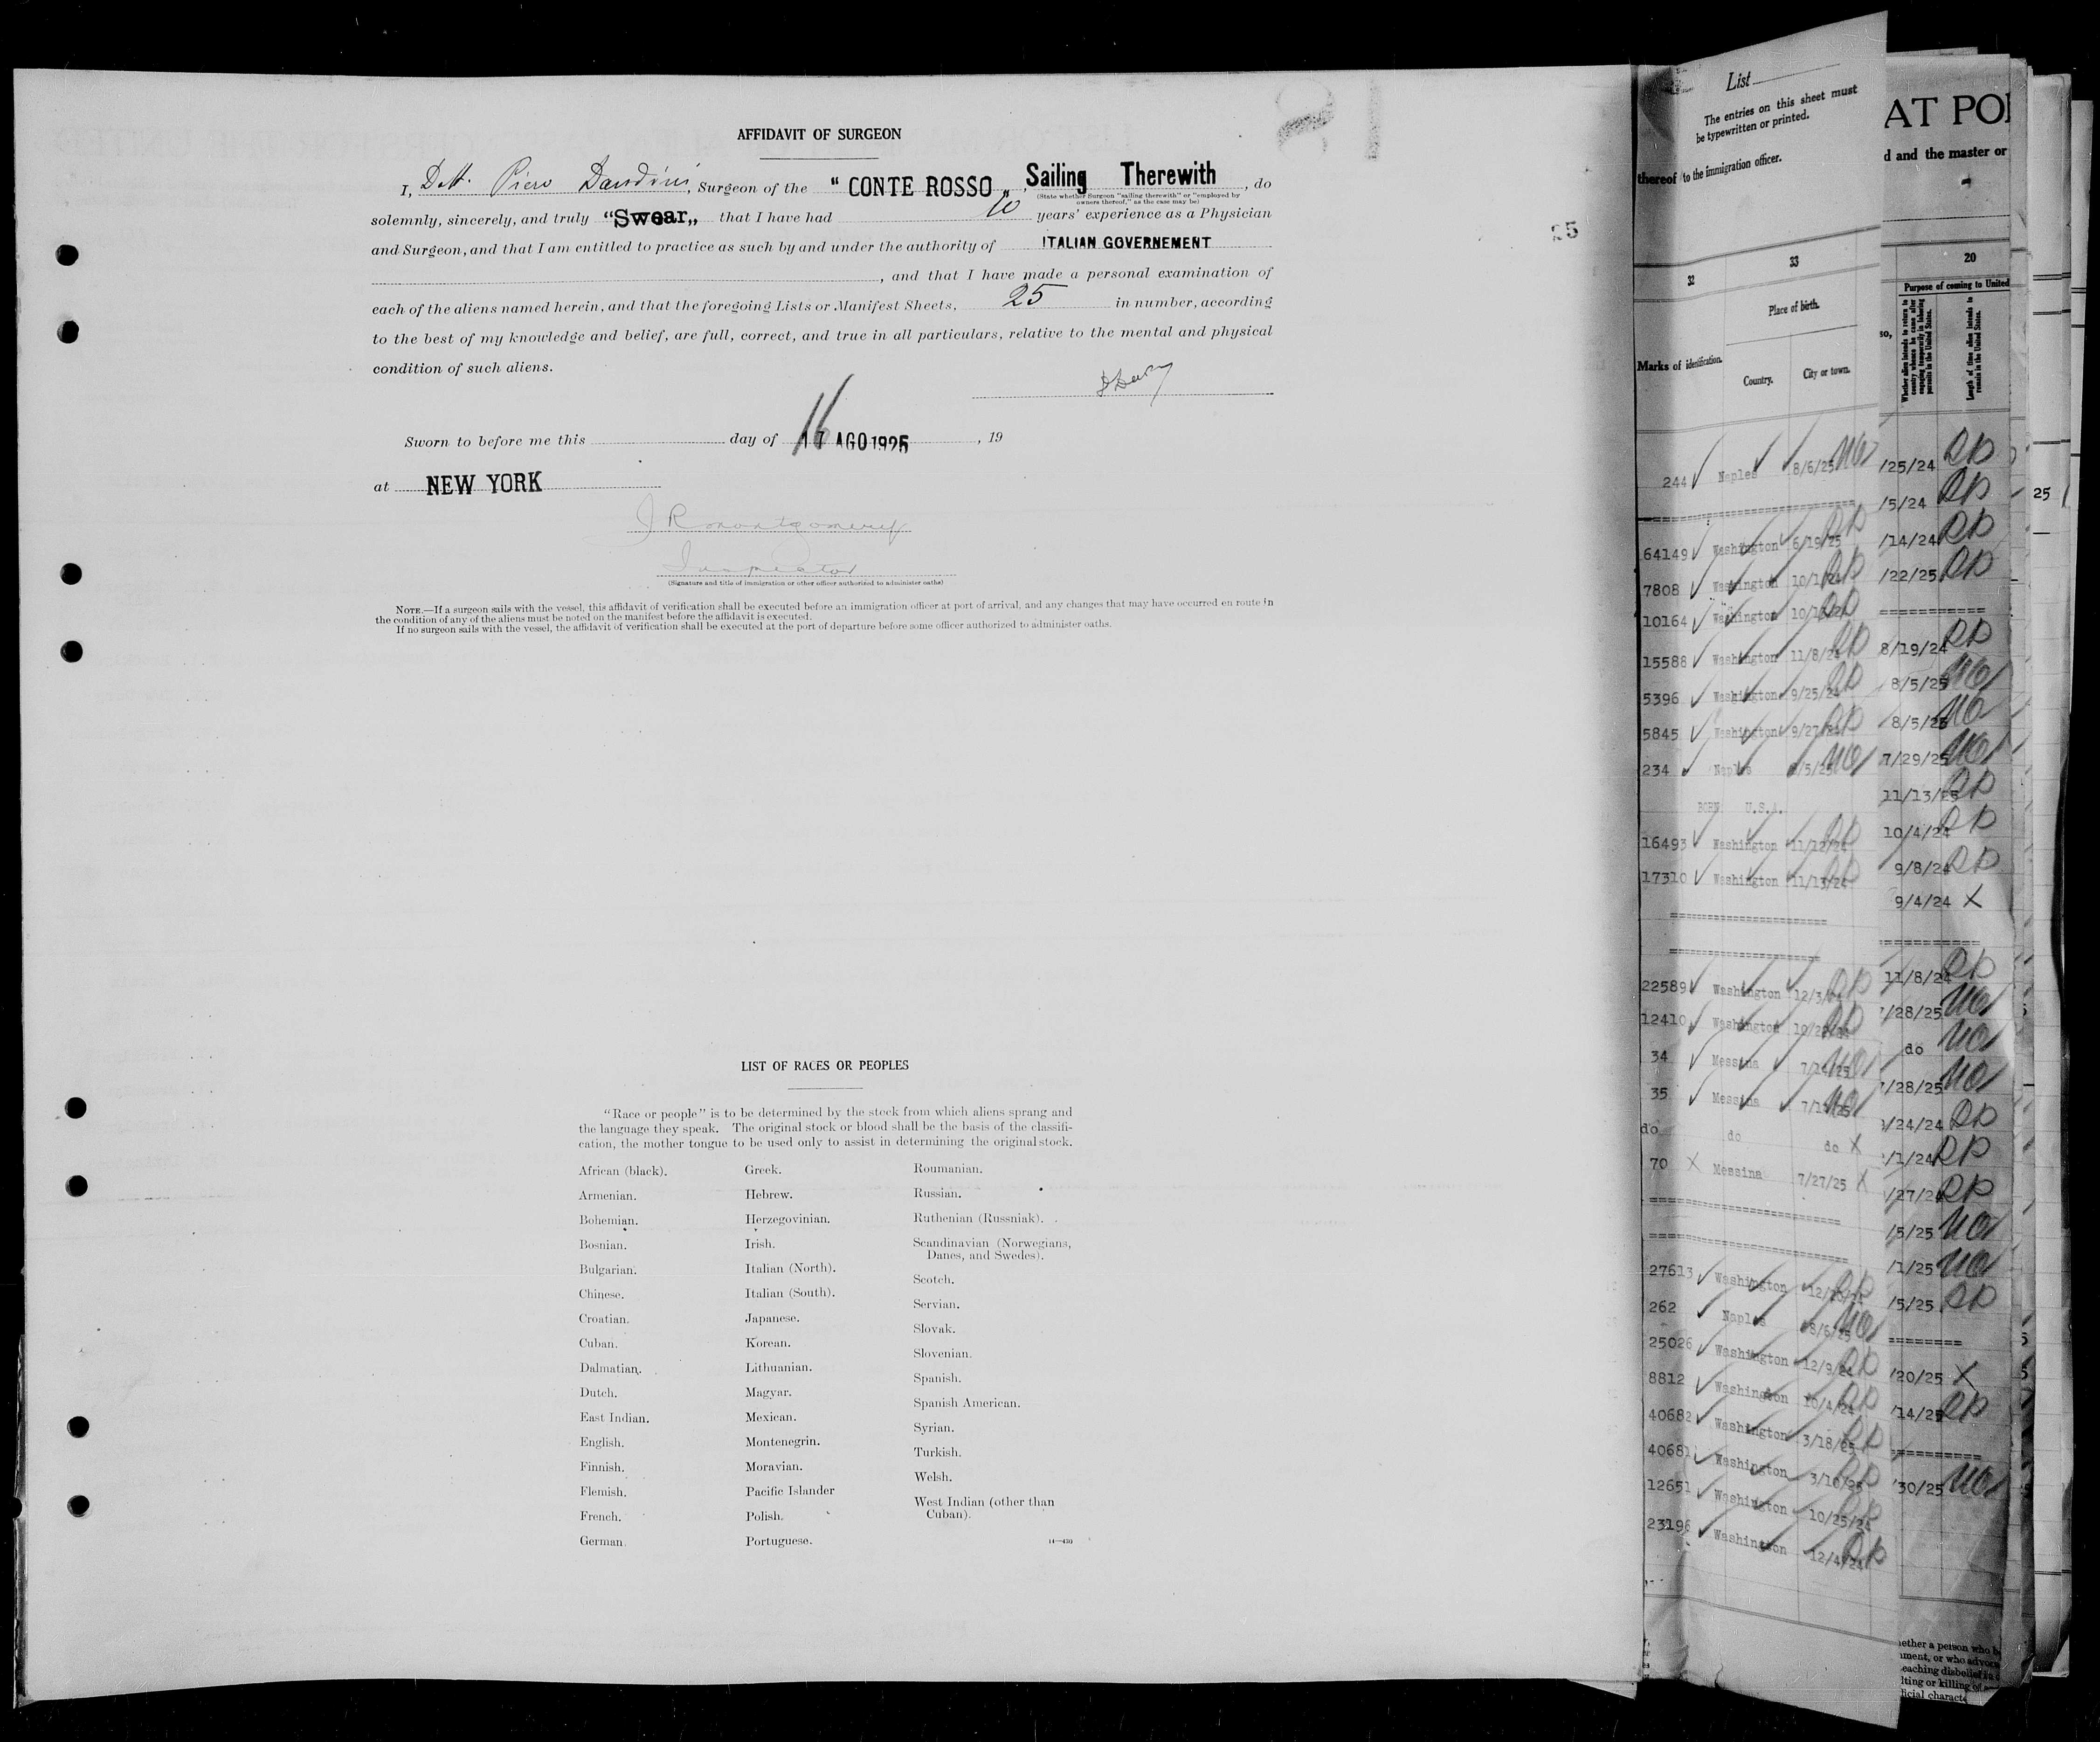 AFFIDAVIT OF SURGEON
I, Dott. Piero Dandini, Surgeon of the "CONTE ROSSO„, Sailing Therewith, do
(State whether Surgeon "sailing therewith" or "employed by
owners thereof," as the case may be)
solemnly, sincerely, and truly "Swear„ that I have had 10 years' experience as a Physician
and Surgeon, and that I am entitled to practice as such by and under the authority of ITALIAN GOVERNEMENT
, and that I have made a personal examination of
each of the aliens named herein, and that the foregoing Lists or Manifest Sheets, 25 in number, according
to the best of my knowledge and belief, are full, correct, and true in all particulars, relative to the mental and physical
condition of such aliens.
Sworn to before me this day of 16 17 AGO 1925, 19
at NEW YORK
J R Montgomery
Inspector
(Signature and title of immigration or other officer authorized to administer oaths)
NOTE.—If a surgeon sails with the vessel, this affidavit of verification shall be executed before an immigration officer at port of arrival, and any changes that may have occurred en route in
the condition of any of the aliens must be noted on the manifest before the affidavit is executed.
If no surgeon sails with the vessel, the affidavit of verification shall be executed at the port of departure before some officer authorized to administer oaths.
25
LIST OF RACES OR PEOPLES
"Race or people" is to be determined by the stock from which aliens sprang and
the language they speak. The original stock or blood shall be the basis of the classifi-
cation, the mother tongue to be used only to assist in determining the original stock.
African (black).
Armenian.
Bohemian.
Bosnian.
Bulgarian.
Chinese.
Croatian.
Cuban.
Dalmatian.
Dutch.
East Indian.
English.
Finnish.
Flemish.
French.
German.
Greek.
Hebrew.
Herzegovinian.
Irish.
Italian (North).
Italian (South).
Japanese.
Korean.
Lithuanian.
Magyar.
Mexican.
Montenegrin.
Moravian.
Pacific Islander
Polish.
Portuguese.
Roumanian.
Russian.
Ruthenian (Russniak).
Scandinavian (Norwegians,
Danes, and Swedes).
Scotch.
Servian.
Slovak.
Slovenian.
Spanish.
Spanish American.
Syrian.
Turkish.
Welsh.
West Indian (other than
Cuban).
14—430
List
The entries on this sheet must
be typewritten or printed.
thereof to the immigration officer.
32 33
Marks of identification.
Place of birth.
Country. City or town.
244 Naples 8/6/25
64149 Washington 6/19/25
7808 Washington 10/1/24
10164 Washington
15588 Washington 11/8/24
5396 Washington 9/25/24
5845 Washington 9/27/24
234 Naples 8/5/25
BORN U.S.A.
16493 Washington 11/12/24
17310 Washington 11/13/24
22589 Washington 12/3/24
12410 Washington
34 Messina
35 Messina
do do do X
70 X Messina 7/27/25 X
27613 Washington
262 Naples 8/6/25
25026 Washington 12/9/24
8812 Washington 10/4/24
40682 Washington 3/18/25
40681 Washington
12651 Washington 10/25/24
23196 Washington 12/4/24
AT PO
d and the master or
20
Purpose of coming to United
Whether alien intends to return to
country whence he came after
engaging temporarily in laboring
pursuits in the United States.
Length of time alien intends to
remain in the United States.
/25/24
/5/24
/14/24
/22/25
8/19/24
8/5/25
8/5/25
7/29/25
11/13/25
10/4/24
9/8/24
9/4/24 X
11/8/24
/28/25
do
/28/25
/24/24
/1/24
/27/24
/5/25
/1/25
/5/25
/20/25 X
/14/25
/30/25
25
ether a person who
ment, or who advoc
eaching disbelief in
lting or killing of
ficial characte